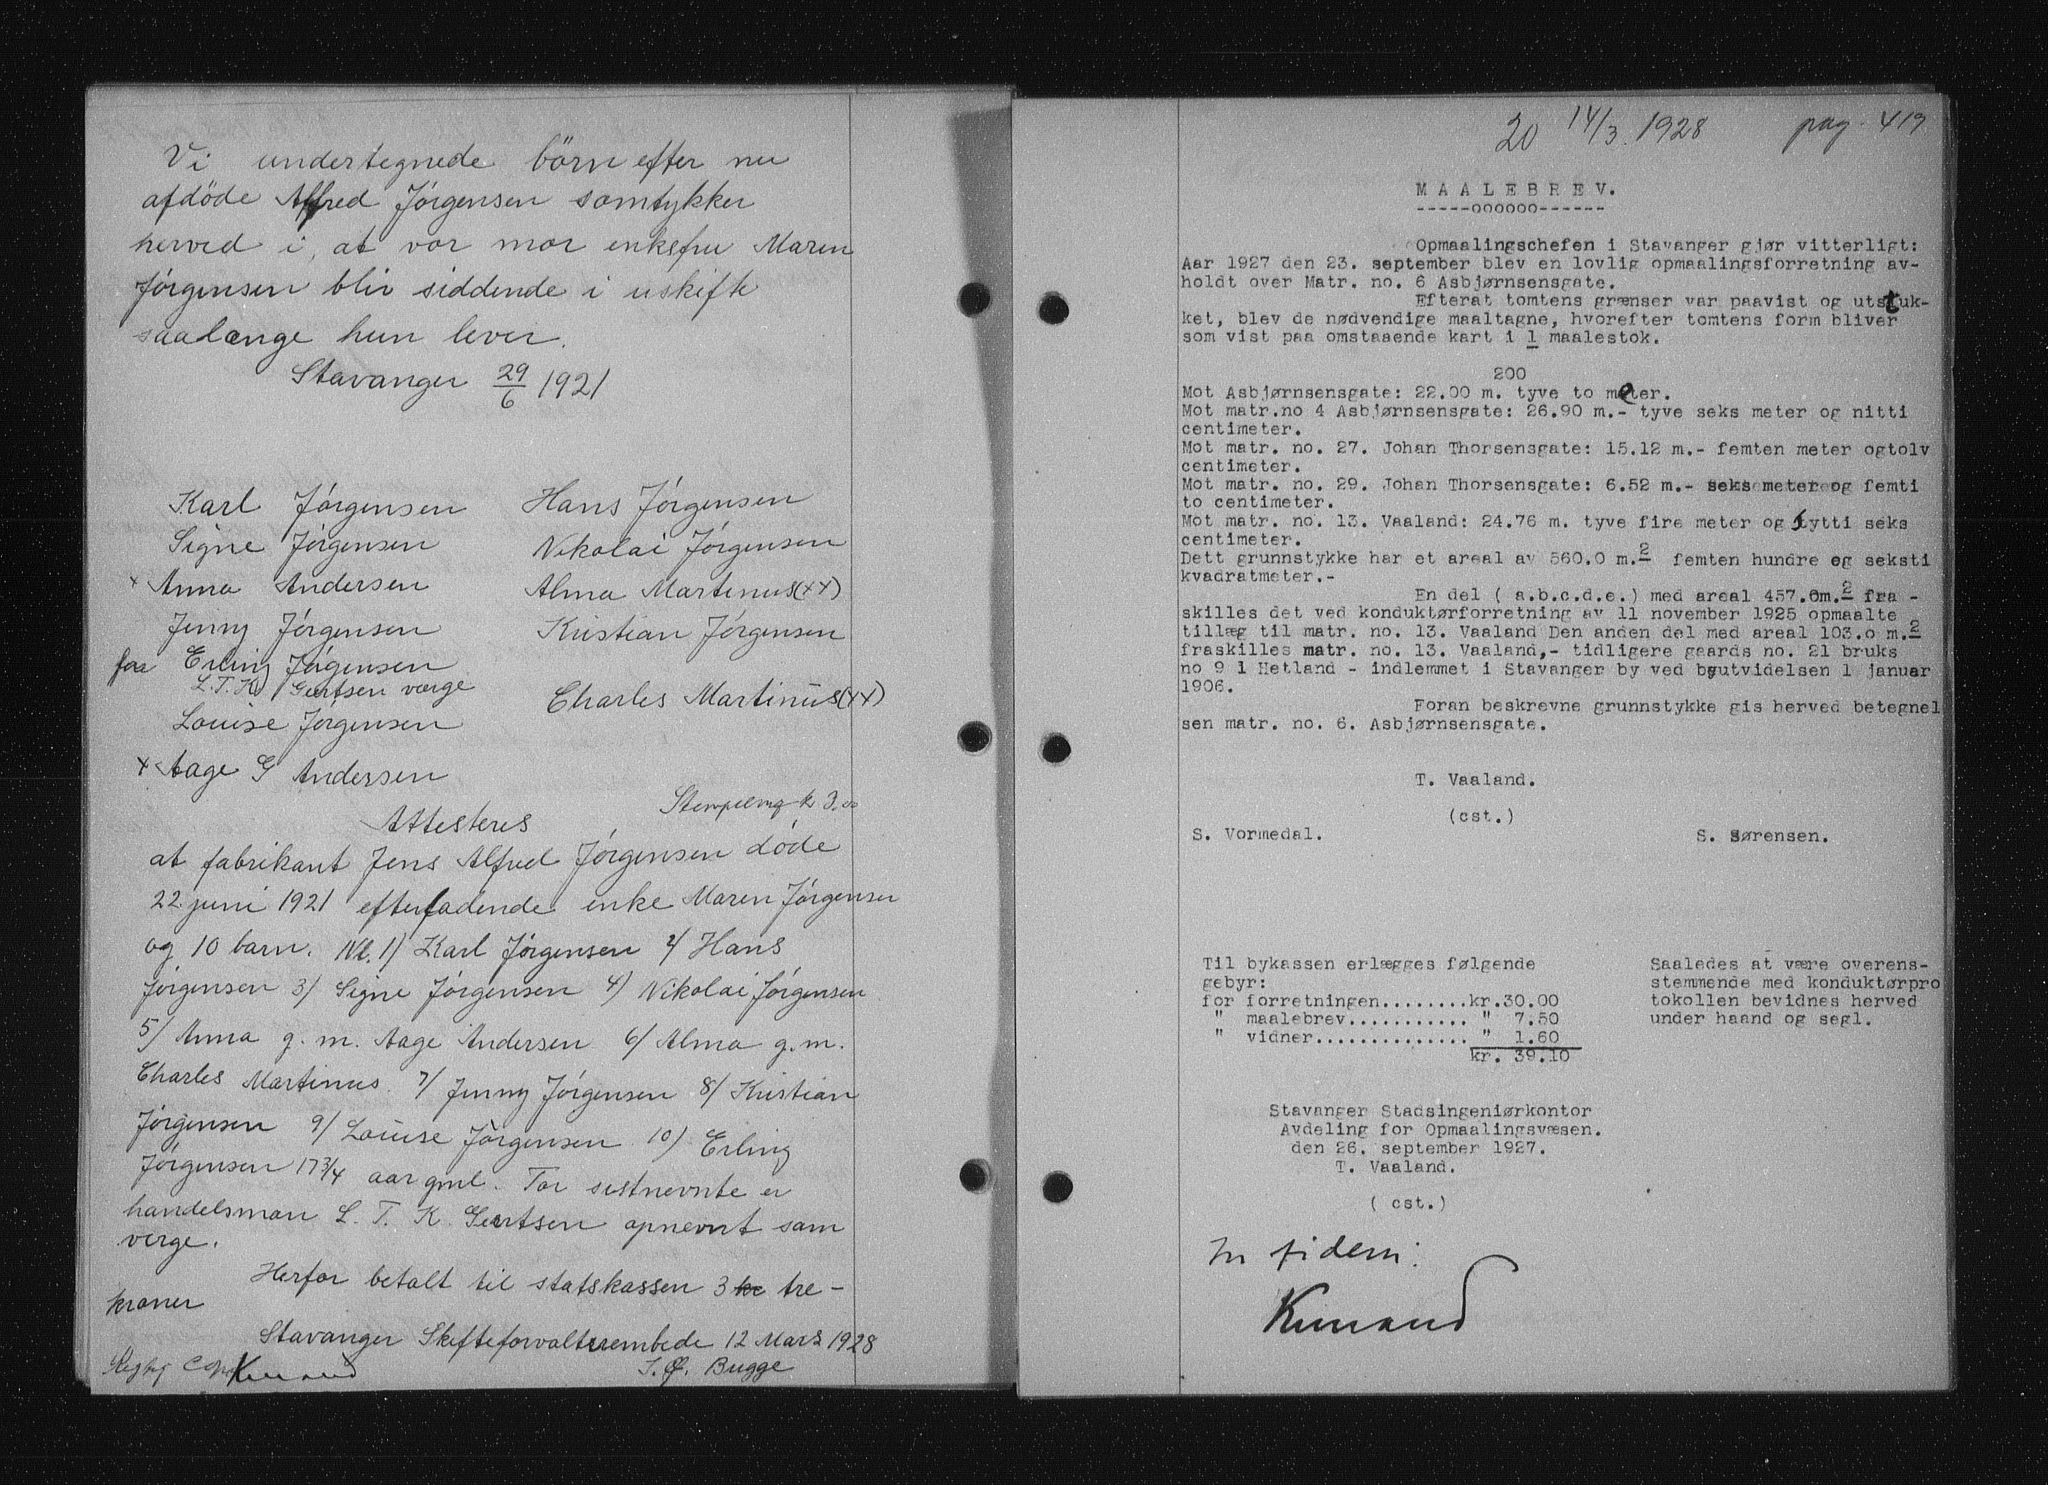 Vi undertegnede börn efter nu
afdöde Alfred Jørgensen samtykker
herved i, at vor mor enkefru Maren
Jørgensen blir siddende i uskifte
saalænge hun lever.
Stavanger 29/6 1921
Karl Jørgensen
Signe Jørgensen
x Anna Andersen
Jenny Jørgensen
for Erling Jørgensen
L. T. K. Gertsen verge
Louise Jørgensen
x Aage G Andersen
Hans Jørgensen
Nikolai Jørgensen
Alma Martinus (xx)
Kristian Jørgensen
Charles Martinus (xx)
Stempling kr 3.00
Attesteres
at fabrikant Jens Alfred Jørgensen døde
22 juni 1921 efterladende enke Maren Jørgensen
og 10 barn. Nl. 1) Karl Jørgensen 2/ Hans
Jørgensen 3/ Signe Jørgensen 4) Nikolai Jørgensen
5/ Anna g. m. Aage Andersen 6/ Alma g. m.
Charles Martinus. 7/ Jenny Jørgensen 8/ Kristian
Jørgensen 9/ Louise Jörgensen 10) Erling
Jørgensen 17 3/4 aar gml. For sistnevnte er
handelsman L. T. K. Gertsen opnevnt som
verge.
Herfor betalt til statskassen 3 kr tre-
kroner
Stavanger Skifteforvalterembede 12 Mars 1928
S. Ø. Bugge
20 14/3. 1928 pag. 419
MAALEBREV.
-----oooooo------
Opmaalingschefen i Stavanger gjør vitterligt:
Aar 1927 den 23. september blev en lovlig opmaalingsforretning av-
holdt over Matr. no. 6 Asbjørnsensgate.
Efterat tomtens grænser var paavist og utstuk-
ket, blev de nødvendige maaltagne, hvorefter tomtens form bliver
som vist paa omstaaende kart i 1 maalestok.
200
Mot Asbjørnsensgate: 22.00 m. tyve to meter.
Mot matr.no 4 Asbjørnsensgate: 26.90 m.- tyve seks meter og nitti
centimeter.
Mot matr. no. 27. Johan Thorsensgate: 15.12 m.- femten meter ogtolv
centimeter.
Mot matr. no. 29. Johan Thorsensgate: 6.52 m.- seks meter og femti
to centimeter.
Mot matr. no. 13. Vaaland: 24.76 m. tyve fire meter og sytti seks
centimeter.
Dett grunnstykke har et areal av 560.0 m.2 femten hundre og seksti
kvadratmeter.-
En del ( a.b.c.d.e.) med areal 457.0m.2 fra -
skilles det ved konduktørforretning av 11 november 1925 opmaalte
tillæg til matr. no. 13. Vaaland Den anden del med areal 103.o m.2
fraskilles matr. no. 13. Vaaland,- tidligere gaards no. 21 bruks
no 9 i Hetland - indlemmet i Stavanger by ved byutvidelsen 1 januar
1906.
Foran beskrevne grunnstykke gis herved betegnel
sen matr. no. 6. Asbjørnsensgate.
T. Vaaland.
(cst.)
S. Vormedal. S. Sørensen.
Til bykassen erlægges følgende
gebyr:
for forretningen........kr.30.00
" maalebrev........... " 7.50
" vidner............... " 1.60
kr. 39.10
Saaledes at være overens-
stemmende med konduktørpro
tokollen bevidnes herved
under haand og segl.
Stavanger Stadsingeniørkontor
Avdeling for Opmaalingsvæsen.
den 26. september 1927.
T. Vaaland.
( cst.)
In fidem: